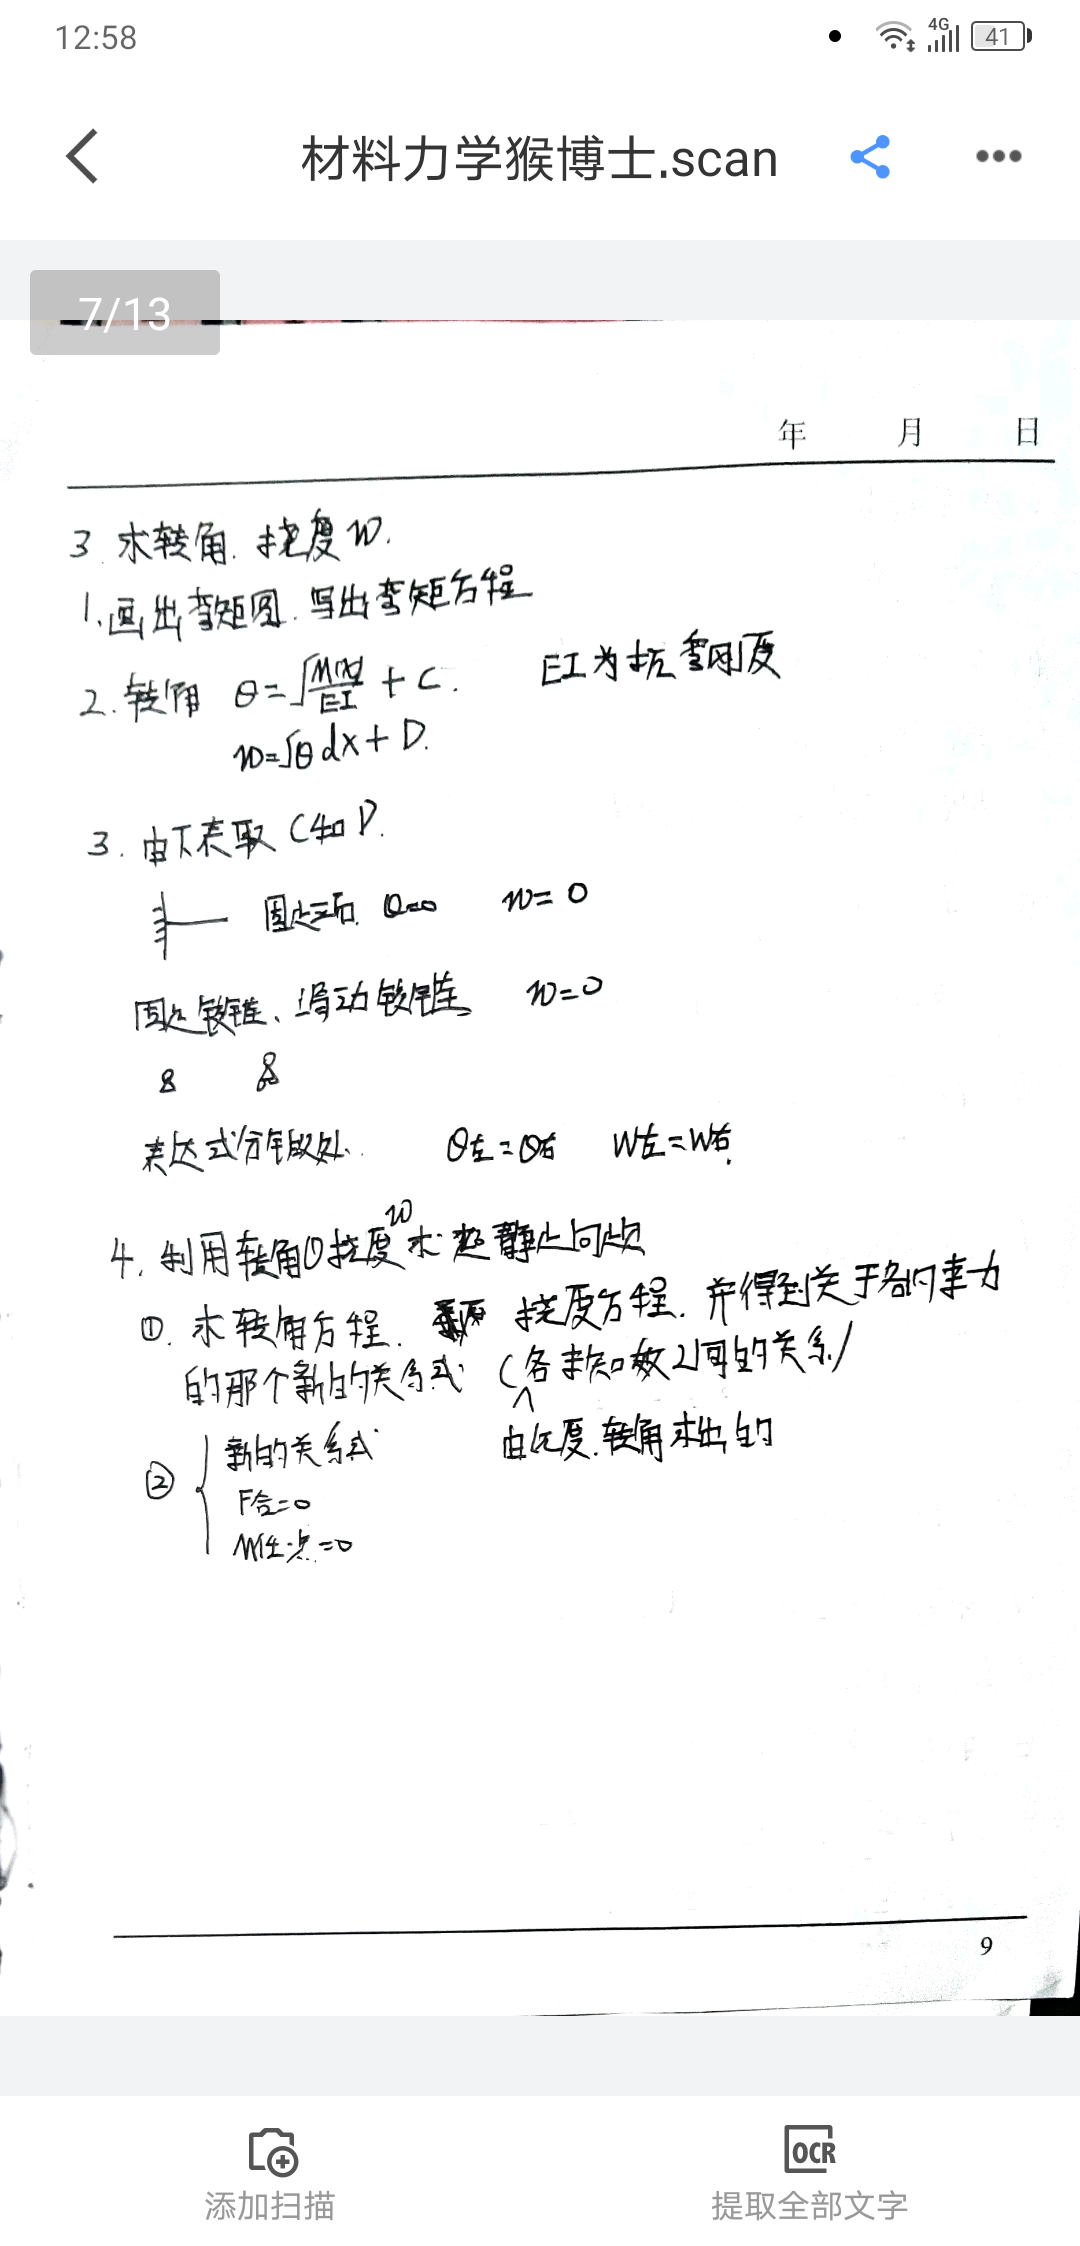 12:58
4G
41
材料力学猴博士.scan
7/13
年 月 日
3. 求转角. 挠度w.
1. 画出弯矩图. 写出弯矩方程
2. 转角 θ=∫ M(x)/EI + C. EI为抗弯刚度
w=∫θdx+D.
3. 由下表取C和D.
固定端. θ=0 w=0
固定铰链、滑动铰链 w=0
表达式分段处. θ左=θ右 W左=W右.
4. 利用转角θ挠度w求超静止问题
①. 求转角方程. 挠度方程. 并得到关于各约束力
的那个新的关系式 (各未知数之间的关系)
由挠度.转角求出的
② 新的关系式
F合=0
M任点=0
9
添加扫描
OCR
提取全部文字